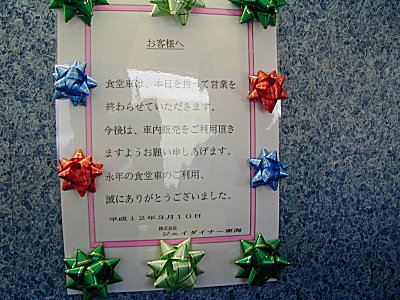 お客様へ
食堂車は、本日を持って営業を
終わらせていただきます。
今後は、車内販売をご利用頂き
ますようお願い申しあげます。
永年の食堂車のご利用、
誠にありがとうございました。
平成12年3月10日
株式会社
ジェイダイナー東海